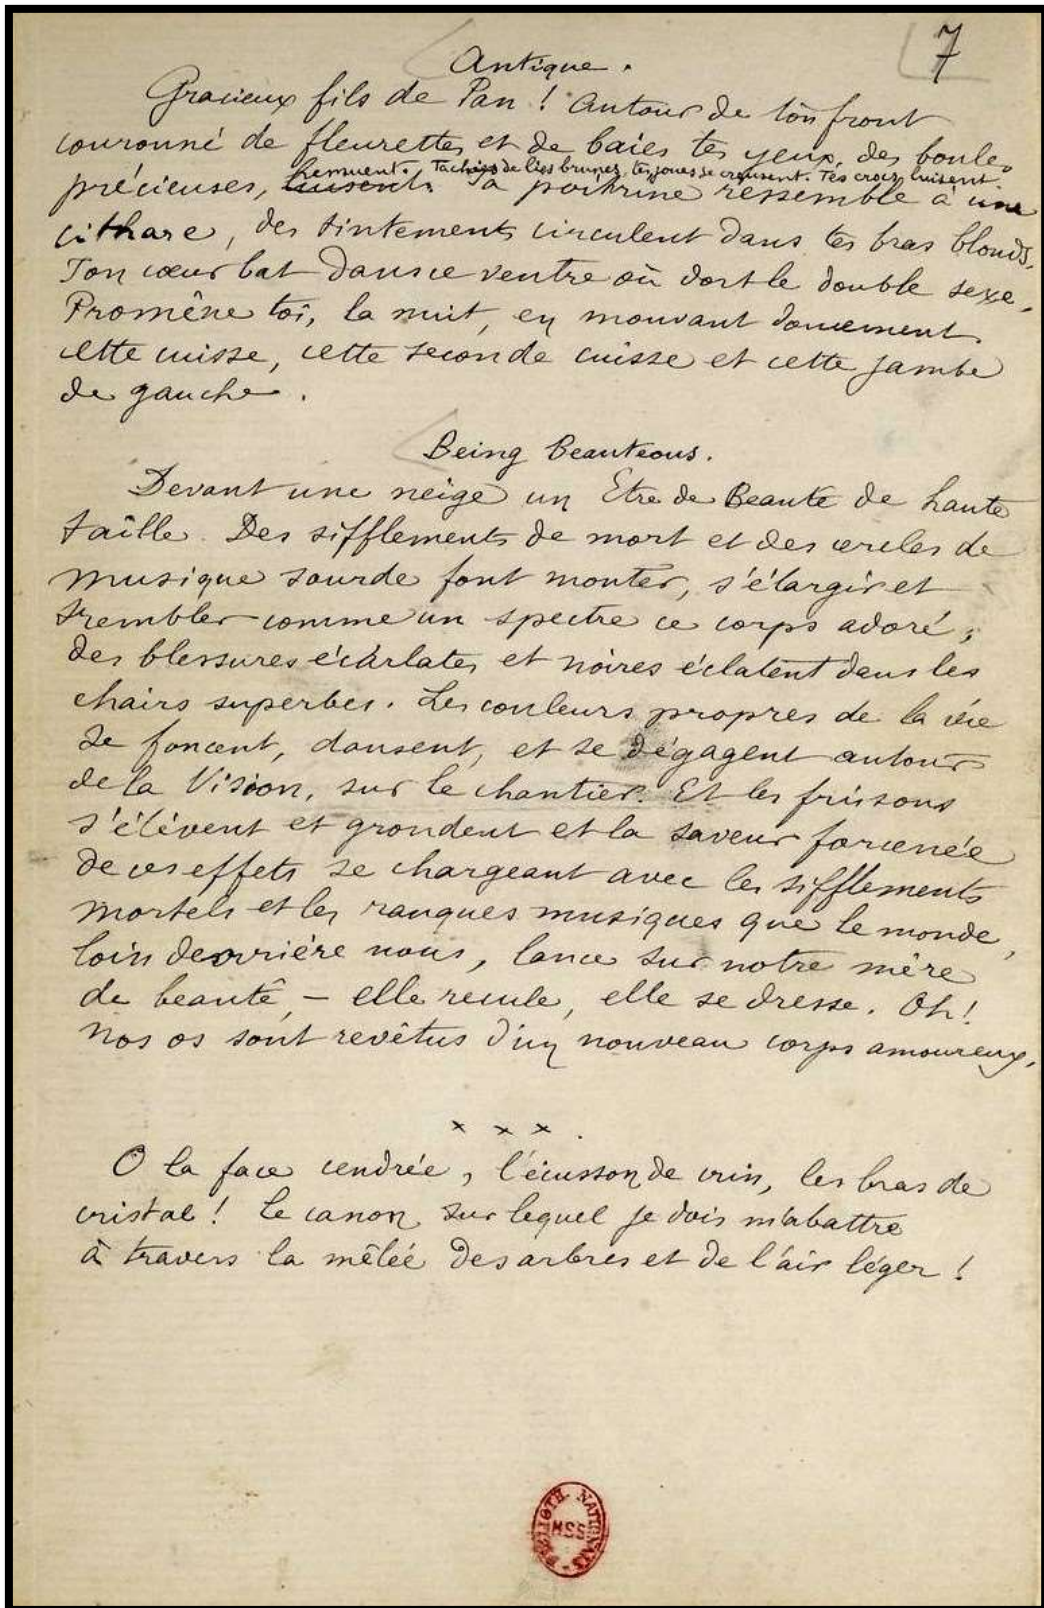 7
Antique.
Gracieux fils de Pan ! Autour de ton front
couronné de fleurettes et de baies tes yeux, des boules
remuent. Tachées de lies brunes, tes joues se creusent. Tes crocs luisent.
précieuses, luisent. Ta poitrine ressemble à une
cithare, des tintements circulent dans tes bras blonds.
Ton cœur bat dans ce ventre où dort le double sexe.
Promène toi, la nuit, en mouvant doucement
cette cuisse, cette seconde cuisse et cette jambe
de gauche.
Being Beauteous.
Devant une neige un Etre de Beauté de haute
taille. Des sifflements de mort et des cercles de
musique sourde font monter, s'élargir et
trembler comme un spectre ce corps adoré ;
des blessures écarlates et noires éclatent dans les
chairs superbes. Les couleurs propres de la vie
se foncent, dansent, et se dégagent autour
de la Vision, sur le chantier. Et les frissons
s'élèvent et grondent et la saveur forcenée
de ces effets se chargeant avec les sifflements
mortels et les rauques musiques que le monde,
loin derrière nous, lance sur notre mère
de beauté, – elle recule, elle se dresse. Oh !
nos os sont revêtus d'un nouveau corps amoureux.
x x x .
O la face cendrée, l'écusson de crin, les bras de
cristal ! Le canon sur lequel je dois m'abattre
à travers la mêlée des arbres et de l'air léger !
BIBLIOTH. NATIONALE
MSS